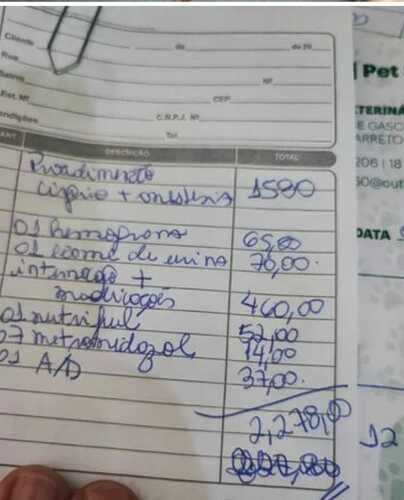 Cliente
de
de 20
Rua
Bairro
Nº
Est. Nº
CEP
C.N.P.J. Nº
ondições
Tel.
ANT.
DESCRIÇÃO
TOTAL
cirgrio + 1580
01 hemograma 65,00
01 exame de urina 70,00
internação +
medicações 460,00
01 nutriful 52,00
07 metronidazol 14,00
01 A/D 37,00
2,278,00
Pet
TERINÁ
E GASC
ARRETO
206 | 18
@out
DATA
12